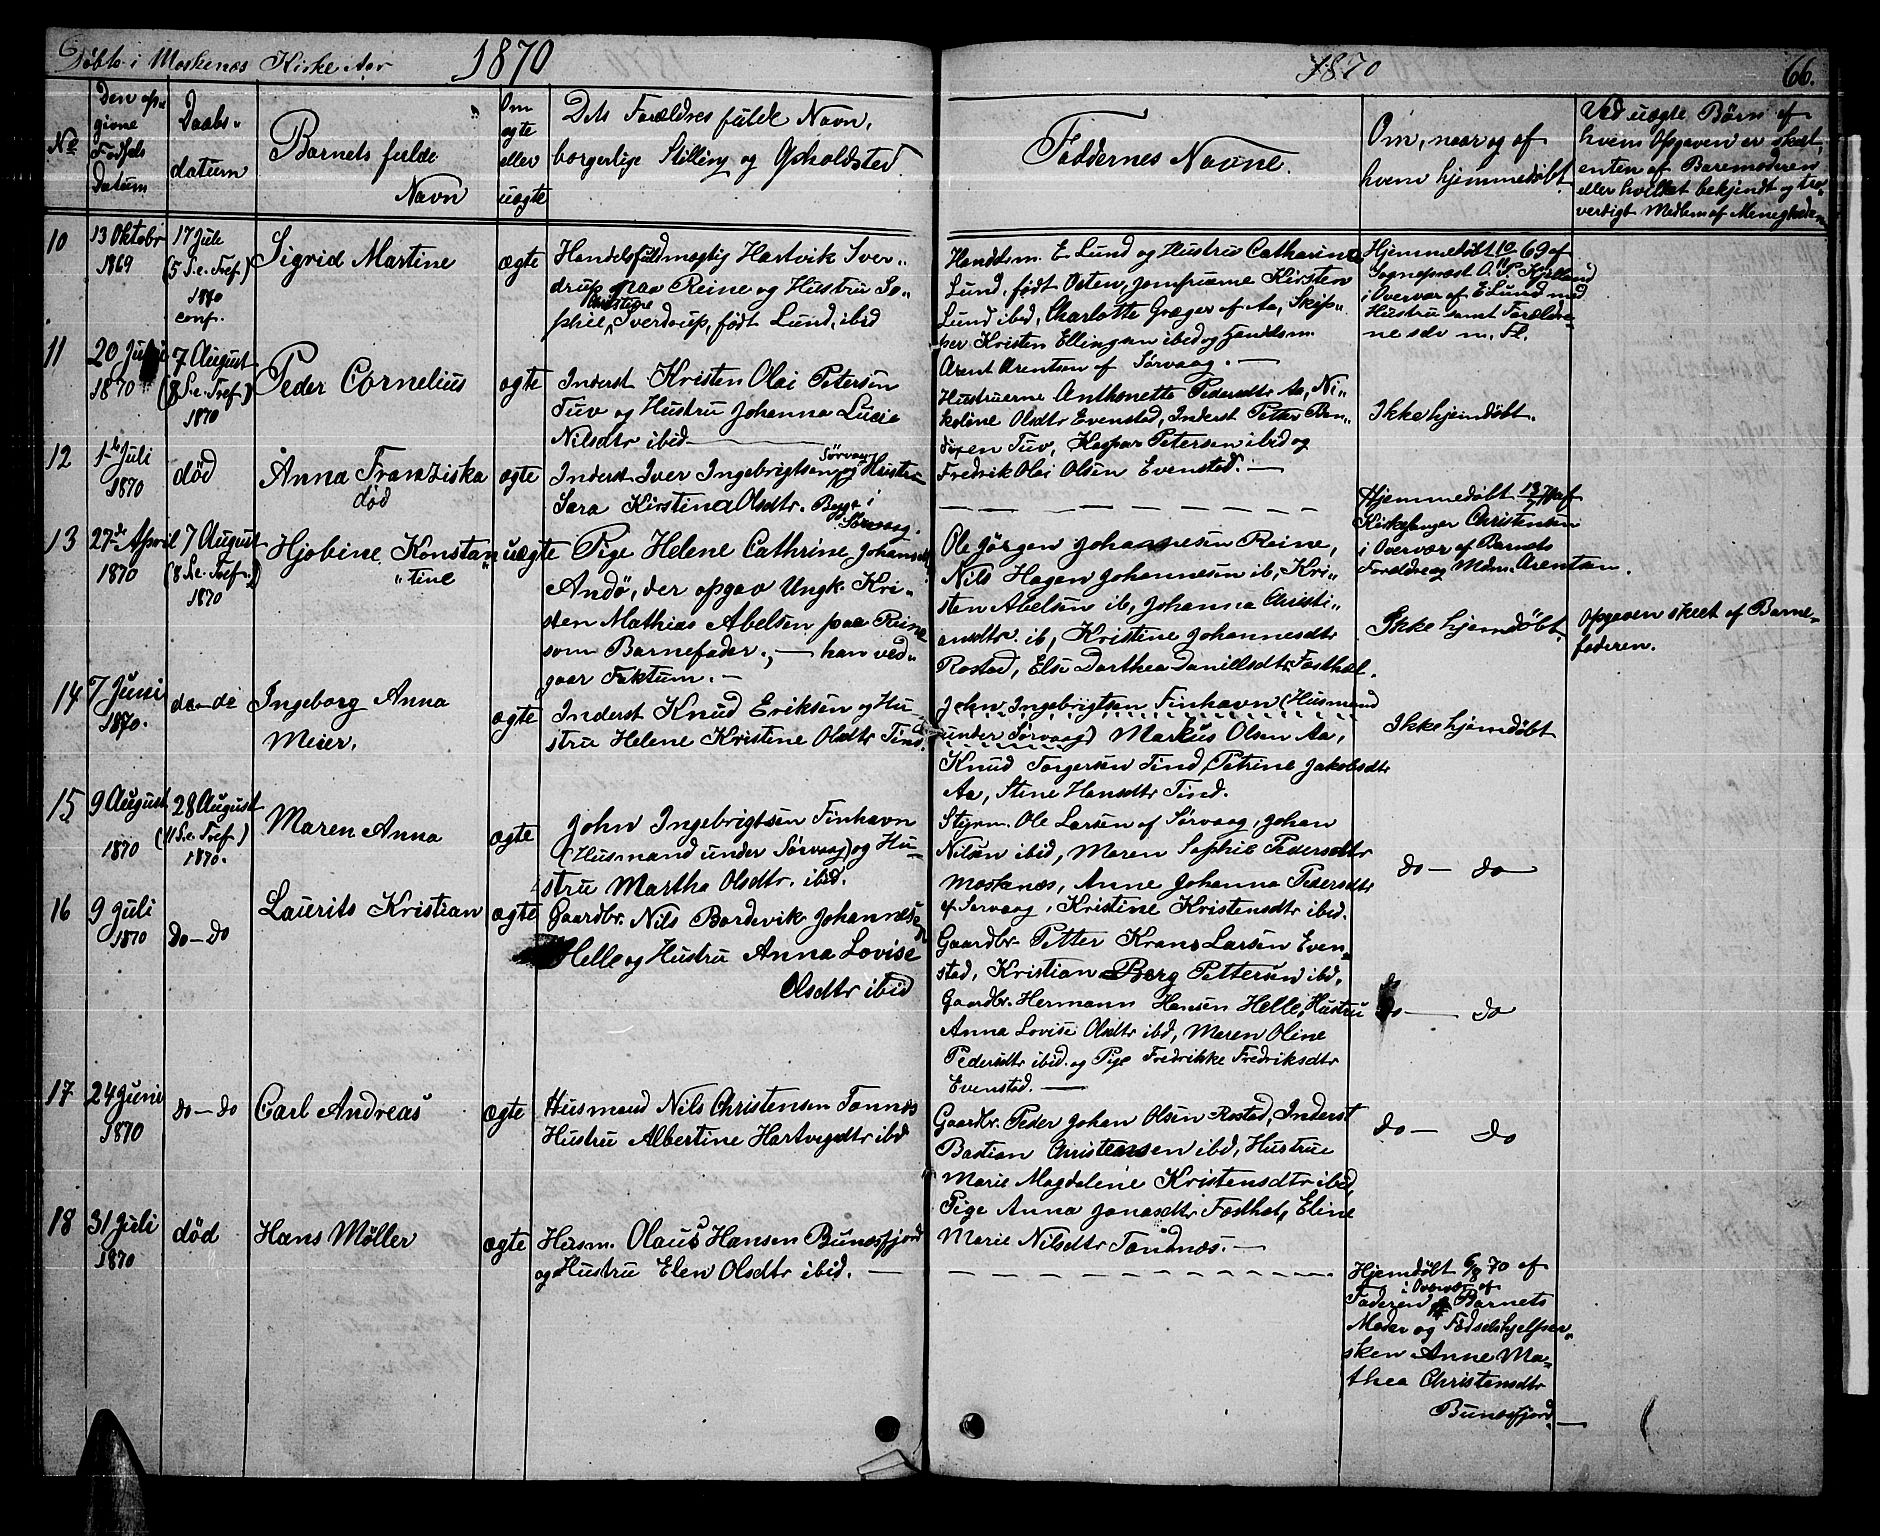 Døbte i Moskenæs Kirke Aar 1870
1870
66.
No
Den op-
givne
Fødsels
Datum
Daabs-
datum
Barnets fulde
Navn
Om
ægte
eller
uægte
Dets Forældres fulde Navn,
borgerlige Stilling og Opholdsted.
Faddernes Navne.
Om, naar og af
hvem hjemmedøbt
Ved uægte Børn af
hvem Opgaven er skeet
enten af Barnemoderen
eller hvilket bekjendt og tro-
værdigt Medlem af Menigheden
10
13 Oktobr
1869
17 Juli
(5 S. e. Tref.)
1870
conf.
Sigrid Martine
ægte
Handelsfuldmægtig Hartvik Sver-
drup paa Reine og Hustru So-
phie, Sverdrup, født Lund, ibid
Handelsm. E Lund og Hustru Catharine
Lund, født Osten, jomfruerne Kirsten
Lund ibid, Charlotte Græger af Aa, Skip-
per Kristen Ellingsen ibid og Handelsm.
Arent Arentsen af Sørvaag. —
Hjemmedøbt 10/11 69 af
Sognepræst O. P. Kjelland
i Overvær af E Lund med
Hustru samt Forældre-
ne
11
20
1870
7 August
(8 S. e. Tref.)
1870
Peder Cornelius
ægte
Inderst Kristen Olai Petersen
Tuv og Hustru Johanna Lucie
Nilsdtr ibid —
Hustruerne Anthonette Pedersdtr Aa, Ni-
koline Olsdtr Evenstad, Inderst Petter Pe-
dersen Tuv, Kaspar Petersen ibid og
Fredrik Olai Olsen Evenstad. —
Ikke hjemdøbt.
12
1ste Juli
1870
død
Anna Franziska
død
ægte
Inderst Iver Ingebrigtsen Sørvaag og Hustru
Sara Kirstina Olsdtr. Begge i
Sørvaag.
Hjemmedøbt 13/7 70 af
Kirkesanger Christensen
i Overvær af Barnets
Forældre og Mdm. Arentsen.
13
27de April
1870
7 August
(8 S. e. Tref.)
1870
Hjobine Konstan-
"tine
uægte
Pige Helene Cathrine Johansdtr
Andø, der opgav Ungk. Kri-
sten Mathias Abelsen paa Reine
som Barnefader., — han ved-
gaar Faktum. —
Ole Jørgen Johannesen Reine,
Nils Hagen Johannesen ib, Kri-
sten Abelsen ib, Johanna Christi-
ansdtr. ib, Kristine Johannesdtr
Rostad, Else Dorthea Danielsdtr. Festhæl.
Ikke hjemdøbt
Opgaven skeet af Barne-
faderen.
14
7 Juni
1870.
do-do
Ingeborg Anna
Meier.
ægte
Inderst Knud Eriksen og Hu-
stru Helene Kristine Olsdtr Tind.
John Ingebrigtsen Finhavn (Husmand
under Sørvaag) Markus Olsen Aa,
Knud Torgersen Tind, Petrine Jakobsdtr
Aa, Stine Hansdtr Tind.
Ikke hjemdøbt
15
9 August
1870
28 August
(11 S. e. Tref.)
1870.
Maren Anna
ægte
John Ingebrigtsen Finhavn
(Husmand under Sørvaag) og Hu-
stru Martha Olsdtr. ibid.
Styrm. Ole Larsen af Sørvaag, Johan
Nilsen ibid, Maren Sophie Pedersdtr
Moskenæs, Anne Johanna Pedersdtr
af Sørvaag, Kristine Kristensdtr ibid.
do — do
16
9 Juli
1870
do-do
Laurits Kristian
ægte
Gaardbr. Nils Bordevik Johannesen
Helle og Hustru Anna Lovise
Olsdtr ibid
Gaardbr. Petter Krane Larsen Even-
stad, Kristian Berg Pettersen ibid,
Gaardbr. Hermann Hansen Helle, Hustru
Anna Lovise Olsdtr ibid, Maren Oline
Pedersdtr ibid. og Pige Fredrikke Fredriksdtr
Evenstad. —
do — do
17
24 Juni
1870
do-do
Carl Andreas
ægte
Husmand Nils Christensen Tønnæs
Hustru Albertine Hartvigsdtr ibd
Gaardbr. Peder Johan Olsen Rostad, Inderst
Bastian Christensen ibid, Hustrue
Marie Magdalene Kristensdtr ibid,
Pige Anna Jonasdtr Festhæl, Eline
Marie Nilsdtr Tønnæs. —
do — do
18
31 Juli
1870
død
Hans Møller
ægte
Husm. Olaus Hansen Bunesfjord
og Hustru Elen Olsdtr ibid. —
Hjemdøbt 6/8 70 af
Faderen i Overvær af Barnets
Moder og Fødselshjelper-
sken Anne Ma-
thea Christensdtr
Bunesfjord —